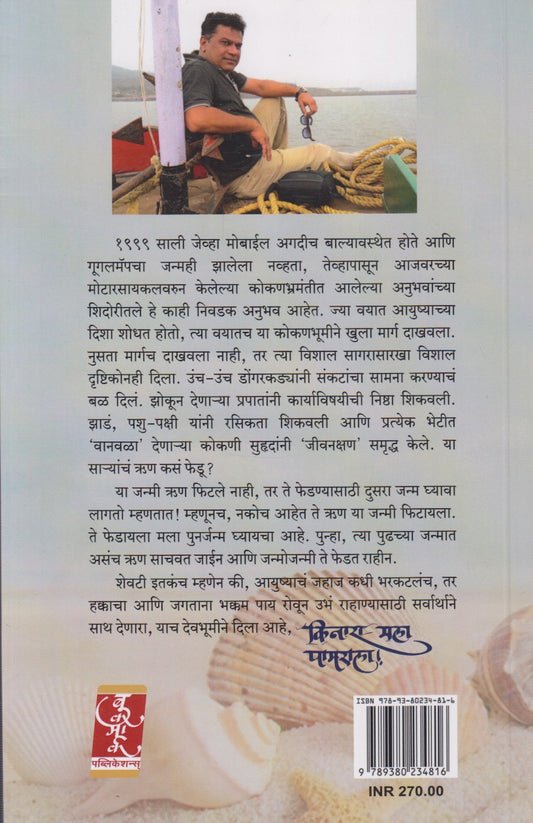 १९९९ साली जेव्हा मोबाईल अगदीच बाल्यावस्थेत होते आणि
गूगलमॅपचा जन्मही झालेला नव्हता, तेव्हापासून आजवरच्या
मोटारसायकलवरुन केलेल्या कोकणभ्रमंतीत आलेल्या अनुभवांच्या
शिदोरीतले हे काही निवडक अनुभव आहेत. ज्या वयात आयुष्याच्या
दिशा शोधत होतो, त्या वयातच या कोकणभूमीने खुला मार्ग दाखवला.
नुसता मार्गच दाखवला नाही, तर त्या विशाल सागरासारखा विशाल
दृष्टिकोनही दिला. उंच-उंच डोंगरकड्यांनी संकटांचा सामना करण्याचं
बळ दिलं. झोकून देणाऱ्या प्रपातांनी कार्याविषयीची निष्ठा शिकवली.
झाडं, पशु-पक्षी यांनी रसिकता शिकवली आणि प्रत्येक भेटीत
'वानवळा' देणाऱ्या कोकणी सुहृदांनी 'जीवनक्षण' समृद्ध केले. या
साऱ्यांचं ऋण कसं फेडू?
या जन्मी ऋण फिटले नाही, तर ते फेडण्यासाठी दुसरा जन्म घ्यावा
लागतो म्हणतात! म्हणूनच, नकोच आहेत ते ऋण या जन्मी फिटायला.
ते फेडायला मला पुनर्जन्म घ्यायचा आहे. पुन्हा, त्या पुढच्या जन्मात
असंच ऋण साचवत जाईन आणि जन्मोजन्मी ते फेडत राहीन.
शेवटी इतकंच म्हणेन की, आयुष्याचं जहाज कधी भरकटलंच, तर
हक्काचा आणि जगताना भक्कम पाय रोवून उभं राहाण्यासाठी सर्वार्थाने
साथ देणारा, याच देवभूमीने दिला आहे,
किनारा मला
पामराला!
बुकमार्क
पब्लिकेशन्स
ISBN 978-93-80234-81-6
9 789380 234816
INR 270.00